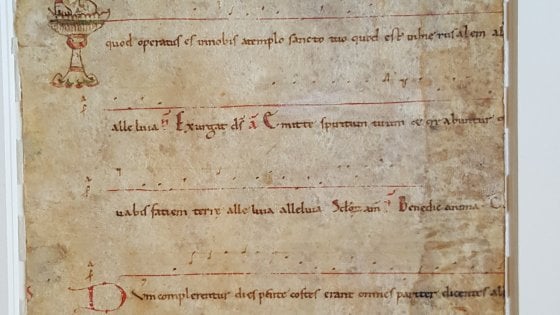 quod operatus es innobis atemplo sancto tuo quod est inhierusalem al
alleluia Exurgat ds a Emitte spiritum tuum et
uabis fatiem terre alleluia alleluia Benedic anima
Dum complerentur dies pente costes erant omnes pariter dicentes al